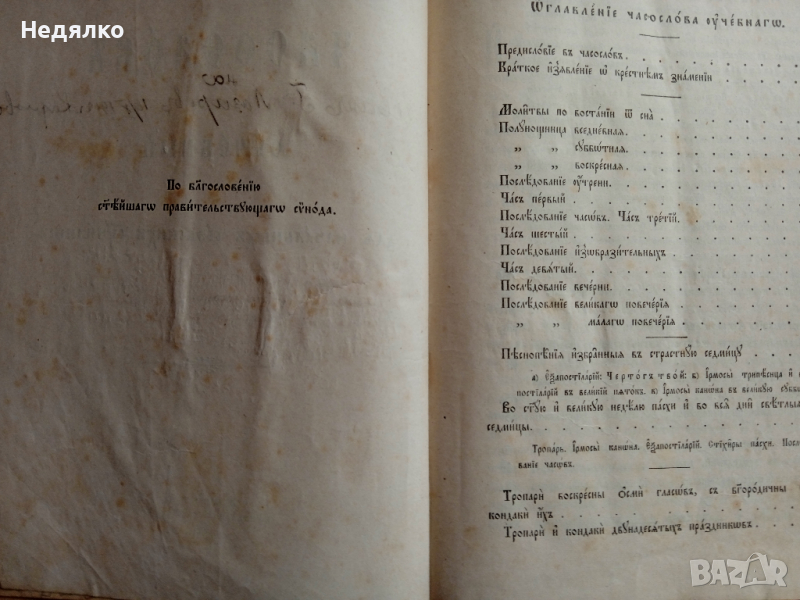 Недялко
на
По бл҃гослове́нїю
ст҃ѣ́йшагѡ прави́тельствующагѡ сѷно́да.
Ѡглавле́нїе часосло́ва ᲂу҆че́бнагѡ.
Предисло́вїе въ часосло́въ.
Кра́ткое и҆з̾ѧвле́нїе ѡ҆ кре́стнѣмъ зна́менїи
Моли̑твы по воста́нїи ѿ сна̀
Полу́нощница вседне́внаѧ.
„ „ сꙋббѡ́тнаѧ.
„ „ воскре́снаѧ.
Послѣ́дованїе ᲂу҆́трени.
Ча́съ пе́рвый.
Послѣ́дованїе часѡ́въ. Ча́съ тре́тїй.
Ча́съ шесты́й.
Послѣ́дованїе и҆з̾ѡбрази́тельныхъ
Ча́съ девѧ́тый.
Послѣ́дованїе вече́рни.
Послѣ́дованїе вели́кагѡ повече́рїѧ
„ „ ма́лагѡ повече́рїѧ
Пѣснопѣ̑нїѧ и҆збра̑нныѧ въ стра́стнꙋю седми́цꙋ
а) є҆ѯапостїла́рїй: Черто́гъ тво́й: в) І҆рмосы̀ трипѣ́снца и҆
постїла́рїй въ вели́кїй пѧто́къ. в) І҆рмосы̀ канѡ́на въ вели́кꙋю сꙋбб
Во ст҃ꙋ́ю и҆ вели́кꙋю недѣ́лю па́схи и҆ во всѧ̑ дни̑ свѣ́тлыѧ
седми́цы.
Тропа́рь. І҆рмосы̀ канѡ́на. Є҆ѯапостїла́рїй. Стїхи̑ры па́схи. Послѣ
ванїе часѡ́въ.
Тропари̑ воскре́сны ѻ҆сми́ гласѡ́въ, съ бг҃оро́дичны
кондаки̑ и҆́хъ
Тропари̑ и҆ кондаки̑ двꙋна́десѧтыхъ пра́здникѡвъ.
BAZAR